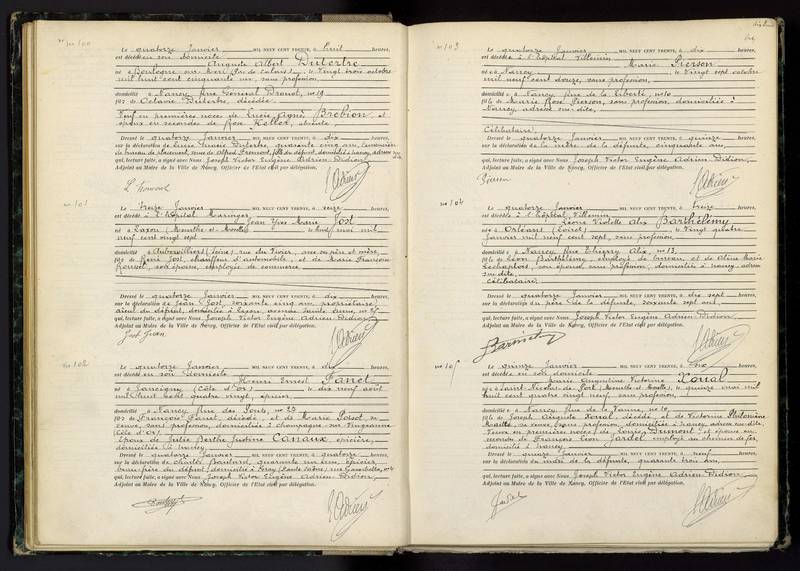 nº 100
Le quatorze Janvier MIL NEUF CENT TRENTE, à huit heures,
est décédé en son domicile
Auguste Albert Dutertre
né à Boulogne sur Mer (Pas de Calais), le vingt trois octobre
mil huit cent cinquante six, sans profession,
domicilié à Nancy Rue Général Drouot, nº 19
fils de Octavie Dutertre, décédée.
Veuf en premières noces de Lucie Agnès Brobion, et
époux en secondes de Rose Keller, absente,
Dressé le quatorze Janvier MIL NEUF CENT TRENTE, à dix heures,
sur la déclaration de Lucie Maria Dutertre, quarante cinq ans,
fille du défunt, domiciliée à Nancy,
qui, lecture faite, a signé avec Nous Joseph Victor Eugène Adrien Didion,
Adjoint au Maire de la Ville de Nancy, Officier de l'Etat civil par délégation.
nº 101
Le treize Janvier MIL NEUF CENT TRENTE, à seize heures,
est décédé à l'hôpital Maringer
Jean Yves Marie Jost
né à Laxou (Meurthe-et-Moselle) le huit mai mil
neuf cent vingt sept
domicilié à Aubervilliers (Seine), rue du Vivier, avec ses père et mère,
fils de Henri Jost, chauffeur d'automobile, et de Marie Françoise
son épouse, employée de commerce
Dressé le quatorze Janvier MIL NEUF CENT TRENTE, à dix heures,
sur la déclaration de Jean Jost, soixante cinq ans, propriétaire,
aïeul du défunt, domicilié à Laxou, avenue Sainte Anne, nº
qui, lecture faite, a signé avec Nous Joseph Victor Eugène Adrien Didion,
Adjoint au Maire de la Ville de Nancy, Officier de l'Etat civil par délégation.
Jost Jean
nº 102
Le quatorze Janvier MIL NEUF CENT TRENTE, à dix heures,
est décédé en son domicile
Henri Ernest Fanet
né à (Côte d'Or) le dix neuf août
mil huit cent quatre vingt, épicier,
domicilié à Nancy Rue des Ponts, nº 23
fils de François Fanet, décédé, et de Marie Poisot, sa
veuve, sans profession, domiciliée à Champagne sur Vingeanne
(Côte d'Or)
Epoux de Julie Berthe Justine Canaux, épicière,
domiciliée à Nancy.
Dressé le quatorze Janvier MIL NEUF CENT TRENTE, à quatorze heures,
sur la déclaration de Charles quarante un ans, épicier,
beau-frère du défunt, domicilié à (Haute Saône), rue Gambetta,
qui, lecture faite, a signé avec Nous Joseph Victor Eugène Adrien Didion,
Adjoint au Maire de la Ville de Nancy, Officier de l'Etat civil par délégation.
nº 103
Le quatorze Janvier MIL NEUF CENT TRENTE, à dix heures,
est décédée à l'hôpital Villemin
Marie Pierson
née à Nancy le vingt sept octobre
mil neuf cent douze, sans profession,
domiciliée à Nancy Rue de la Liberté, nº 10
fille de Marie Rose Pierson, sans profession, domiciliée à
Nancy, adresse sus-dite,
Célibataire,
Dressé le quatorze Janvier MIL NEUF CENT TRENTE, à quinze heures,
sur la déclaration de la mère de la défunte, cinquante ans,
qui, lecture faite, a signé avec Nous Joseph Victor Eugène Adrien Didion,
Adjoint au Maire de la Ville de Nancy, Officier de l'Etat civil par délégation.
Pierson
nº 104
Le quatorze Janvier MIL NEUF CENT TRENTE, à treize heures,
est décédée à l'hôpital Villemin
Léone Violette Alix Barthélémy
née à Orléans (Loiret) le vingt quatre
Janvier mil neuf cent sept, sans profession,
domiciliée à Nancy Rue Thierry Alix nº 13,
fille de Léon Barthélémy, employé de bureau, et de Céline Marie
Lechaptois, son épouse, sans profession, domiciliés à Nancy, adresse
sus-dite,
Célibataire,
Dressé le quatorze Janvier MIL NEUF CENT TRENTE, à dix sept heures,
sur la déclaration du père de la défunte, soixante sept ans,
qui, lecture faite, a signé avec Nous Joseph Victor Eugène Adrien Didion,
Adjoint au Maire de la Ville de Nancy, Officier de l'Etat civil par délégation.
nº 105
Le quinze Janvier MIL NEUF CENT TRENTE, à six heures,
est décédée en son domicile
Marie Augustine Victorine Xoual
née à Saint-Nicolas-de-Port (Meurthe et Moselle), le quinze mai mil
huit cent quatre vingt neuf, sans profession,
domiciliée à Nancy Rue de la nº 10
fille de Joseph Auguste Xoual, décédé, et de Victorine Philomène
sa veuve, sans profession, domiciliée à Nancy, adresse sus-dite,
Veuve en premières noces de Louis Dumont, et épouse en
secondes de François Léon Jardel, employé au chemin de fer,
domicilié à Nancy.
Dressé le quinze Janvier MIL NEUF CENT TRENTE, à neuf heures,
sur la déclaration du mari de la défunte, quarante trois ans,
qui, lecture faite, a signé avec Nous Joseph Victor Eugène Adrien Didion,
Adjoint au Maire de la Ville de Nancy, Officier de l'Etat civil par délégation.
Jardel